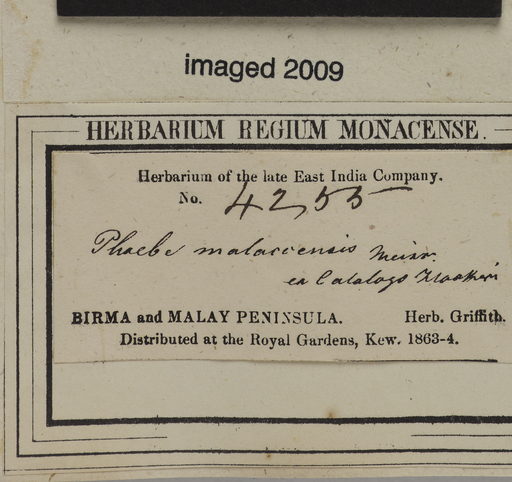 imaged 2009
HERBARIUM REGIUM MONACENSE.
Herbarium of the late East India Company.
No. 4255
Phoebe malaccensis Meisn.
ex Catalogo Hookeri
BIRMA and MALAY PENINSULA. Herb. Griffith.
Distributed at the Royal Gardens, Kew. 1863-4.